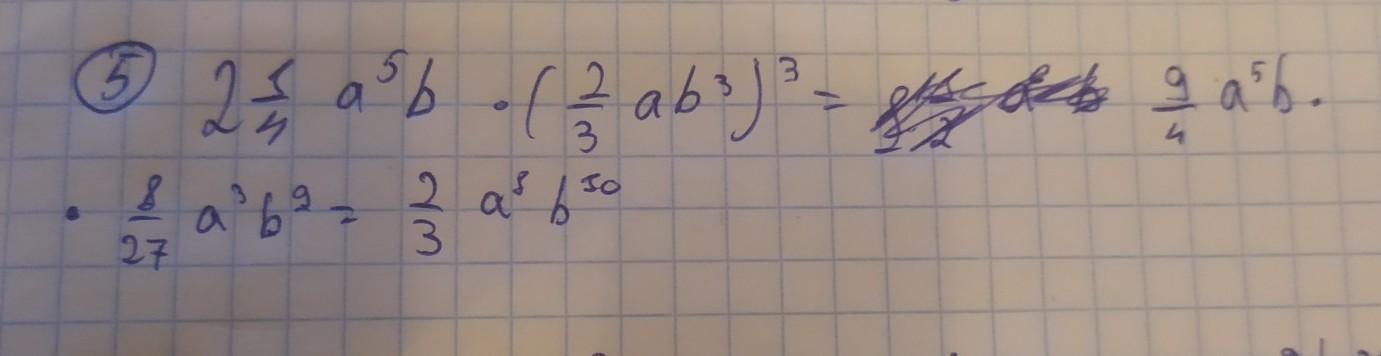 ⑤ 2 1/4 a⁵b · (2/3 ab³)³ = 9/4 a⁵b ·
· 8/27 a³b⁹ = 2/3 a⁸ b¹⁰